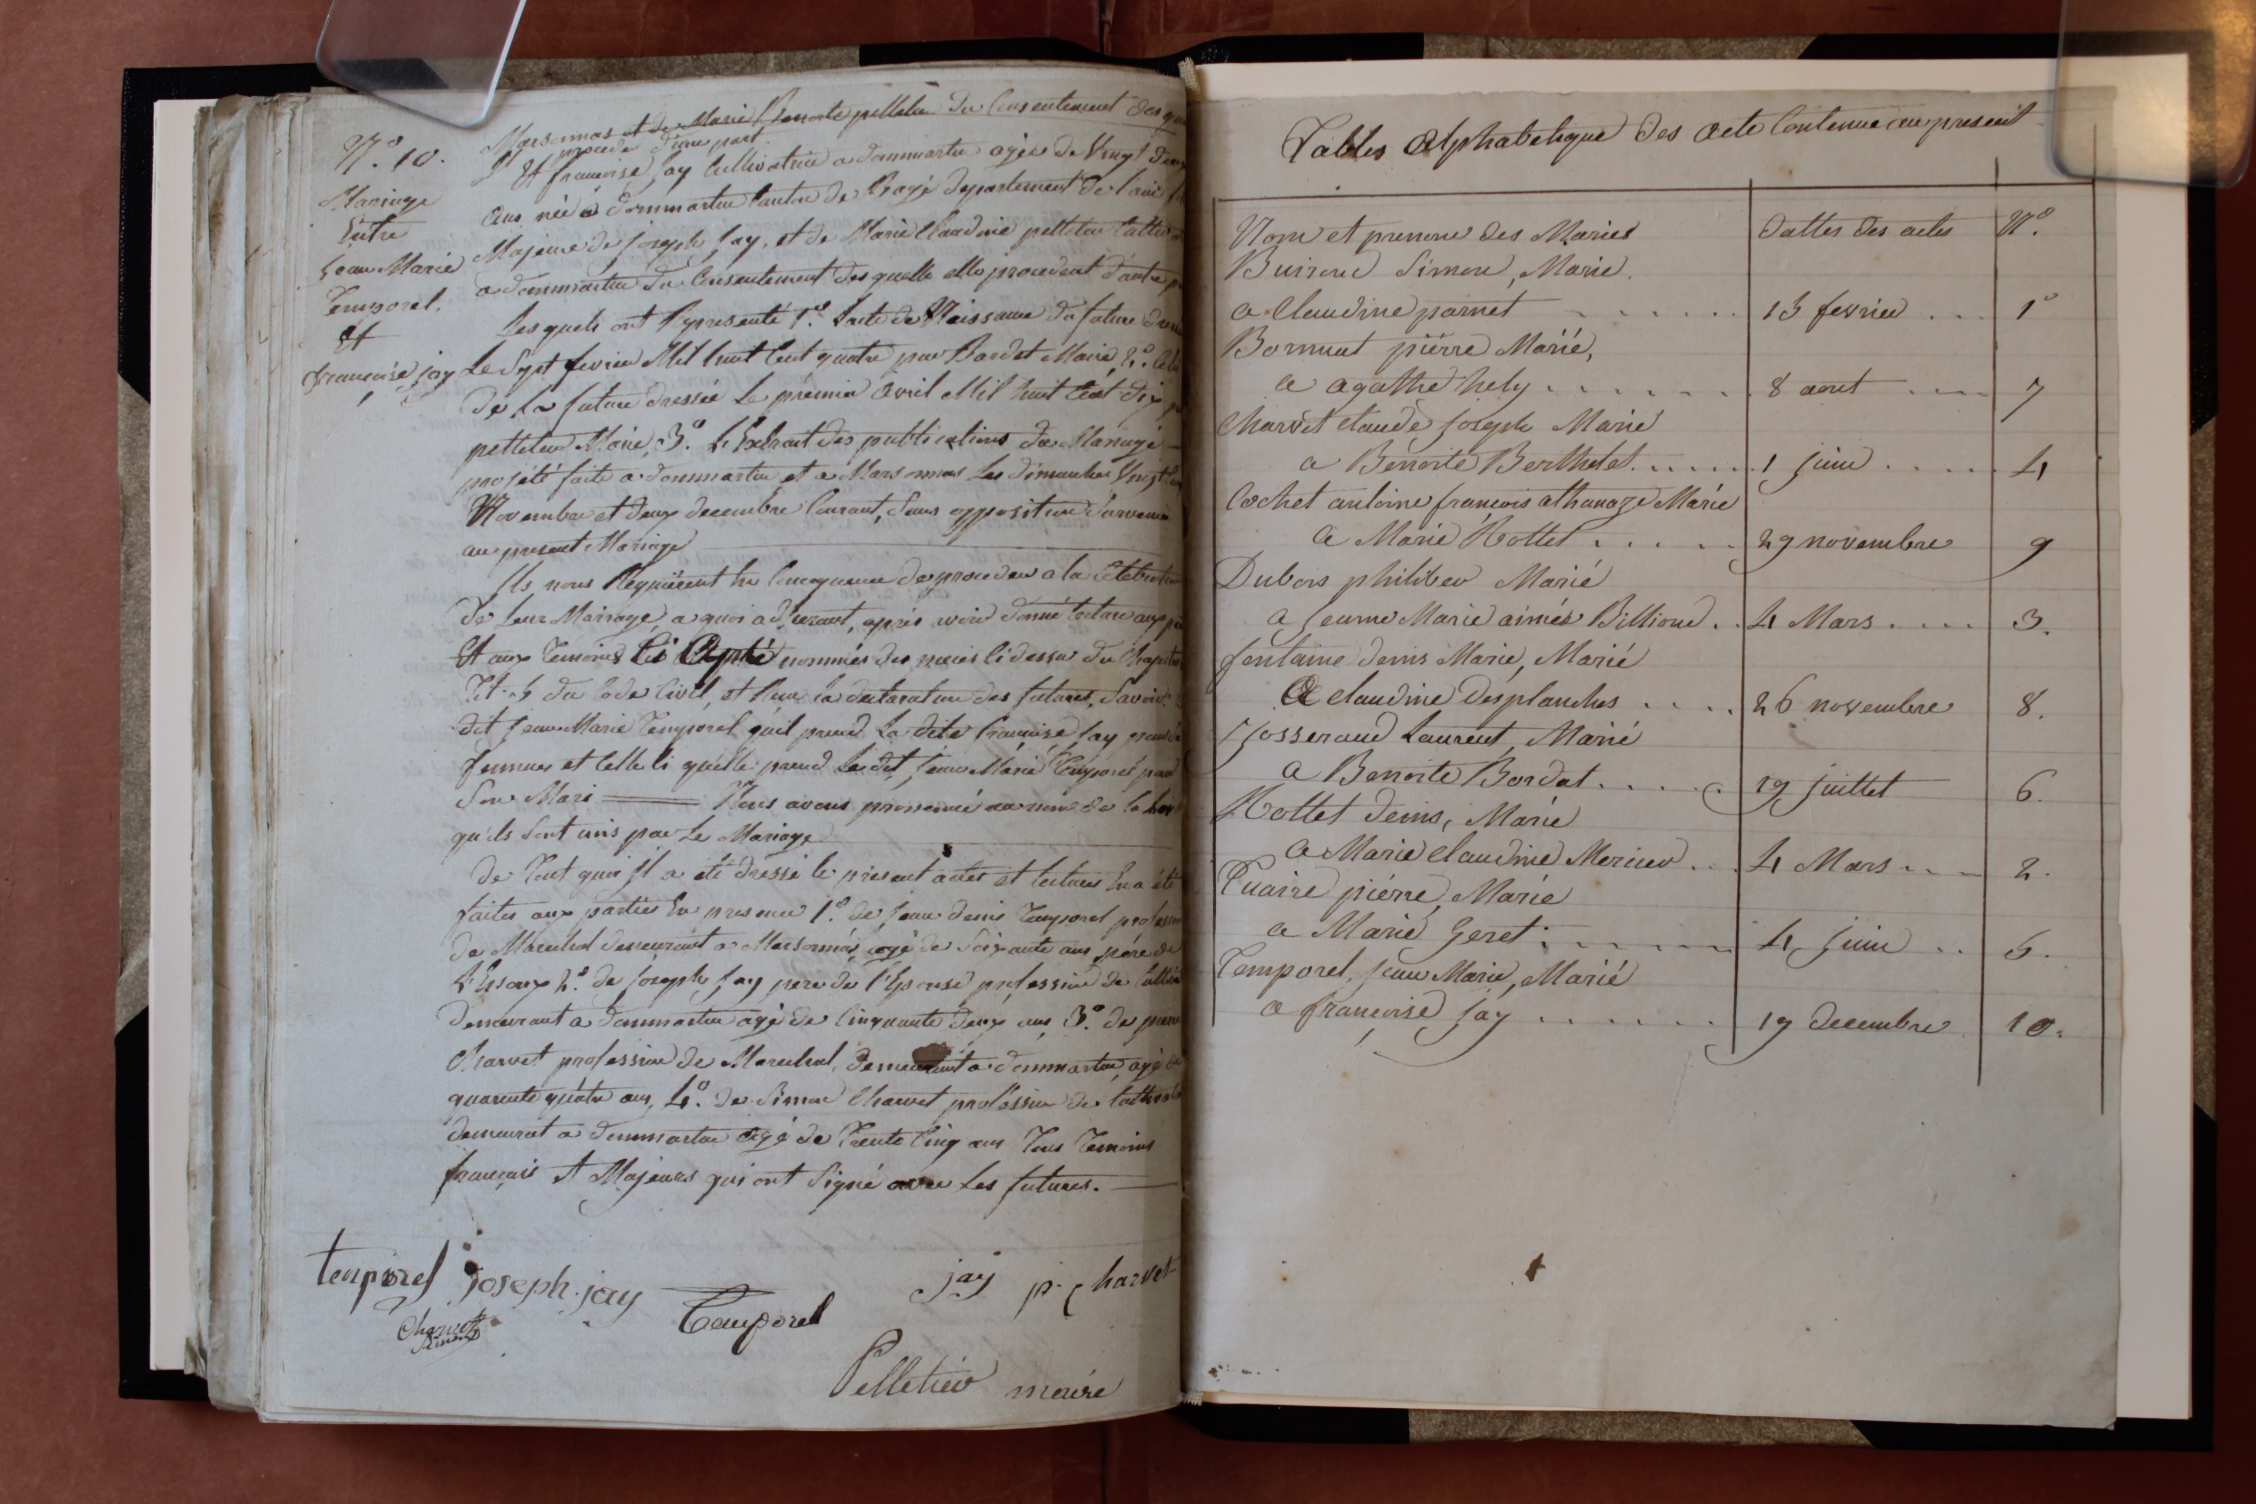 N.o 10.
Mariage
Entre
Jean Marie
Temporel.
Et
françoise jay
Marsonnas et de Marie Benoite pelletier du Consentement des
procede d'une part
Et françoise Jay Cultivatrice a dommartin agée de Vingt deux
ans née a dommartin Canton de Bagé departement de l'ain
Majeure de Joseph Jay, et de Marie Claudine pelletier
a dommartin du Consentement des quelle elle procedent d'autre
Lesquels ont Representé 1.o L'acte de Naissance du future
Le Sept fevrier Mil huit Cent quatre par Bordat Maire, 2.o
de La future dressée Le premier Avril Mil huit Cent dix
pelletier Maire, 3.o L'Extrait des publications du Mariage
projeté faite a dommartin et a Marsonnas Les dimanches Vingt
Novembre et deux decembre Courant, Sans opposition Survenue
au present Mariage
Ils nous Requierent En Consequence de proceder a la Celebration
de Leur Mariage, a quoi adherant, après avoir donné lecture aux
Et aux Temoins Ci Après nommés des pieces Ci dessus du Chapitre
du Code Civil, et Reçu La declaration des futures, Savoir
dit Jean Marie Temporel quil prend La dite françoise Jay pour
femme et Celle Ci quelle prend Le dit Jean Marie Temporel pour
Son Mari Nous avons prononcé au nom de la Loi
qu'ils Sont unis par Le Mariage
de Tout quoi Il a été dressé le present actes et lectures En a été
faites aux parties En presence 1.o de Jean denis Temporel profession
de Marechal demeurant a Marsonnas, agé de Soixante ans, père de
L'Epoux 2.o de Joseph Jay pere de l'Epouse profession de
demeurant a dommartin agé de Cinquante deux ans 3.o de pierre
Charvet profession de Marechal, demeurant a dommartin agé de
quarente quatre ans, 4.o de Simon Charvet profession de
demeurant a dommartin agé de Trente Cinq ans Tous Temoins
français et Majeurs qui ont Signé avec Les futures.
temporel joseph. jay Temporel jay p. charvet
Charvet
Simon
Pelletier maire
Tables Alphabetique des Acte Contenue au present
Nom et prenom des Mariés dattes des actes N.o
Buiroud Simon, Marié.
a Claudine parnet 13 fevrier 1o
Bornuat pierre Marié,
a agathe hely 8 aout 7
Charvet claude Joseph Marié
a Benoite Berthelet 1 juin 4
Cochet antoine françois athanaze Marié
a Marie Rottet 29 novembre 9
Dubois philiber Marié
a Jeanne Marie aimée Billioud 4 Mars 3.
fontaine denis Marie, Marié
a claudine desplanches 26 novembre 8.
Josserand Laurent, Marié
a Benoite Bordat 19 juillet 6.
Rottet denis, Marié
a Marie claudine Mercier 4 Mars 2.
Tuaire pierre, Marié
a Marie Geret 4 juin 5.
Temporel, Jean Marie, Marié
a françoise Jay 19 decembre 10.